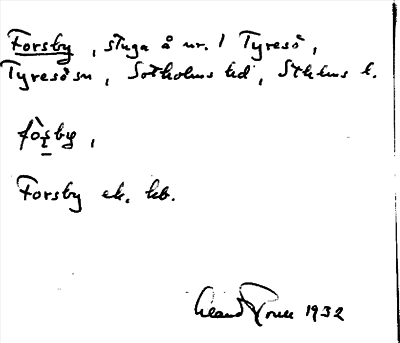 Forsby, stuga å nr. 1 Tyresö,
Tyresö sn, Sotholms hd, Sthlms l.
fòsby,
Forsby ek. kb.
1932